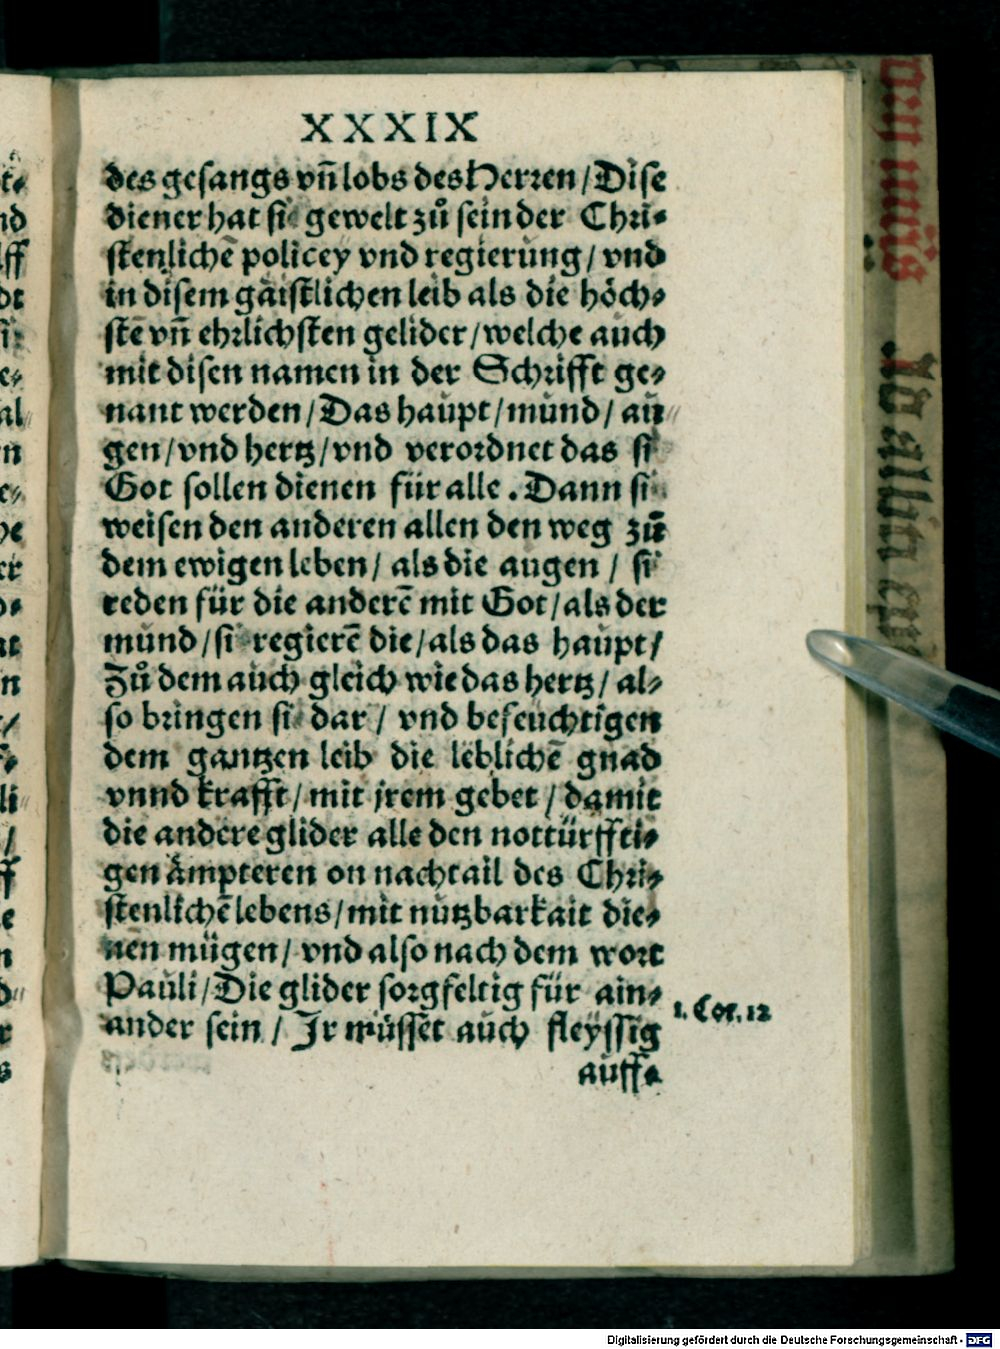 XXXIX
des gesangs vn̄ lobs des Herꝛen / Dise
diener hat si gewelt zů sein der Chri⸗
stenlichē policey vnd regierung / vnd
in disem gaistlichen leib als die hoͤch⸗
stē vn̄ ehrlichsten gelider / welche auch
mit disen namen in der Schrifft ge⸗
nant werden / Das haupt / mund / au⸗
gen / vnd hertz / vnd verordnet das si
Got sollen dienen für alle . Dann si
weisen den anderen allen den weg zů
dem ewigen leben / als die augen / si
reden für die anderē mit Got / als der
mund / si regierē die / als das haupt /
Zů dem auch gleich wie das hertz / al⸗
so bringen si dar / vnd befeuchtigen
dem gantzen leib die leblichē gnad
vnnd krafft / mit jrem gebet / damit
die andere glider alle den nottürffti⸗
gen aͤmpteren on nachtail des Chri⸗
stenlichē lebens / mit nutzbarkait die⸗
nen mügen / vnd also nach dem wort
Pauli / Die glider sorgfeltig für ain⸗
ander sein / Jr müssēt auch fleyssig
auff⸗
1. Cor. 12
Digitalisierung gefördert durch die Deutsche Forschungsgemeinschaft - DFG